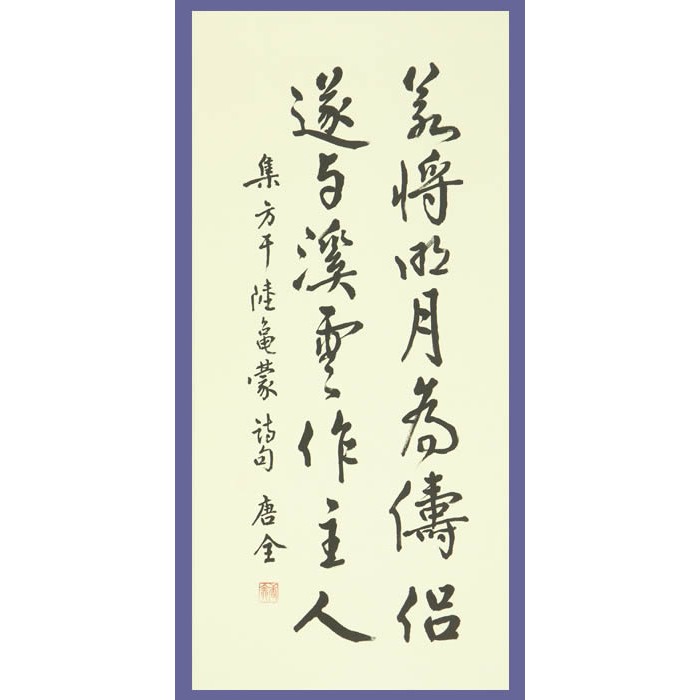 若將明月為儔侶
遂与溪雲作主人
集方干陸龜蒙詩句 唐全